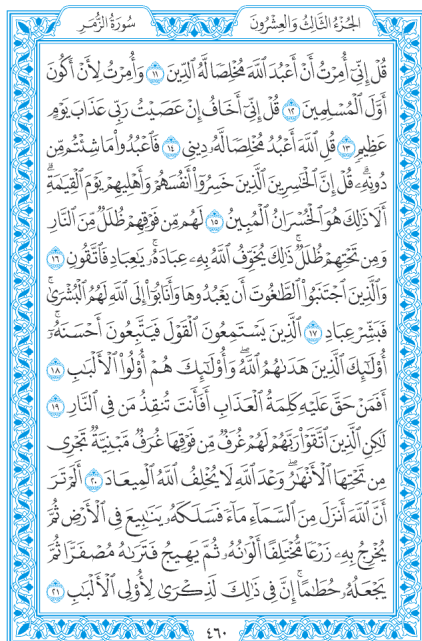 الجُزْءُ الثَّالِثُ وَالْعِشْرُونَ سُورَةُ الزُّمَرِ
قُلْ إِنِّيٓ أُمِرْتُ أَنْ أَعْبُدَ ٱللَّهَ مُخْلِصًا لَّهُ ٱلدِّينَ ١١ وَأُمِرْتُ لِأَنْ أَكُونَ
أَوَّلَ ٱلْمُسْلِمِينَ ١٢ قُلْ إِنِّيٓ أَخَافُ إِنْ عَصَيْتُ رَبِّي عَذَابَ يَوْمٍ
عَظِيمٍ ١٣ قُلِ ٱللَّهَ أَعْبُدُ مُخْلِصًا لَّهُۥ دِينِي ١٤ فَٱعْبُدُوا۟ مَا شِئْتُم مِّن
دُونِهِۦۗ قُلْ إِنَّ ٱلْخَٰسِرِينَ ٱلَّذِينَ خَسِرُوٓا۟ أَنفُسَهُمْ وَأَهْلِيهِمْ يَوْمَ ٱلْقِيَٰمَةِۗ
أَلَا ذَٰلِكَ هُوَ ٱلْخُسْرَانُ ٱلْمُبِينُ ١٥ لَهُم مِّن فَوْقِهِمْ ظُلَلٌ مِّنَ ٱلنَّارِ
وَمِن تَحْتِهِمْ ظُلَلٌۚ ذَٰلِكَ يُخَوِّفُ ٱللَّهُ بِهِۦ عِبَادَهُۥۚ يَٰعِبَادِ فَٱتَّقُونِ ١٦
وَٱلَّذِينَ ٱجْتَنَبُوا۟ ٱلطَّٰغُوتَ أَن يَعْبُدُوهَا وَأَنَابُوٓا۟ إِلَى ٱللَّهِ لَهُمُ ٱلْبُشْرَىٰۚ
فَبَشِّرْ عِبَادِ ١٧ ٱلَّذِينَ يَسْتَمِعُونَ ٱلْقَوْلَ فَيَتَّبِعُونَ أَحْسَنَهُۥٓۚ
أُو۟لَٰٓئِكَ ٱلَّذِينَ هَدَىٰهُمُ ٱللَّهُۖ وَأُو۟لَٰٓئِكَ هُمْ أُو۟لُوا۟ ٱلْأَلْبَٰبِ ١٨
أَفَمَنْ حَقَّ عَلَيْهِ كَلِمَةُ ٱلْعَذَابِ أَفَأَنتَ تُنقِذُ مَن فِي ٱلنَّارِ ١٩
لَٰكِنِ ٱلَّذِينَ ٱتَّقَوْا۟ رَبَّهُمْ لَهُمْ غُرَفٌ مِّن فَوْقِهَا غُرَفٌ مَّبْنِيَّةٌ تَجْرِي
مِن تَحْتِهَا ٱلْأَنْهَٰرُۖ وَعْدَ ٱللَّهِ لَا يُخْلِفُ ٱللَّهُ ٱلْمِيعَادَ ٢٠ أَلَمْ تَرَ
أَنَّ ٱللَّهَ أَنزَلَ مِنَ ٱلسَّمَآءِ مَآءً فَسَلَكَهُۥ يَنَٰبِيعَ فِي ٱلْأَرْضِ ثُمَّ
يُخْرِجُ بِهِۦ زَرْعًا مُّخْتَلِفًا أَلْوَٰنُهُۥ ثُمَّ يَهِيجُ فَتَرَىٰهُ مُصْفَرًّا ثُمَّ
يَجْعَلُهُۥ حُطَٰمًاۚ إِنَّ فِي ذَٰلِكَ لَذِكْرَىٰ لِأُو۟لِي ٱلْأَلْبَٰبِ ٢١
٤٦٠